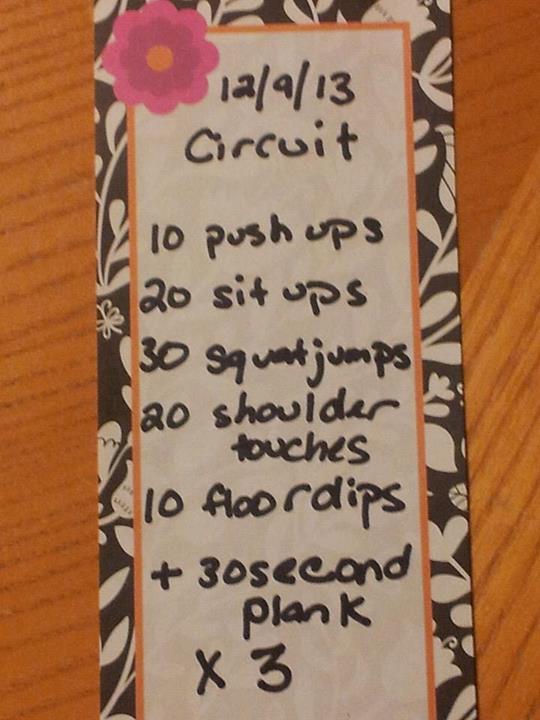 12/9/13
Circuit
10 push ups
20 sit ups
30 squat jumps
20 shoulder
touches
10 floor dips
+ 30 second
plank
x 3